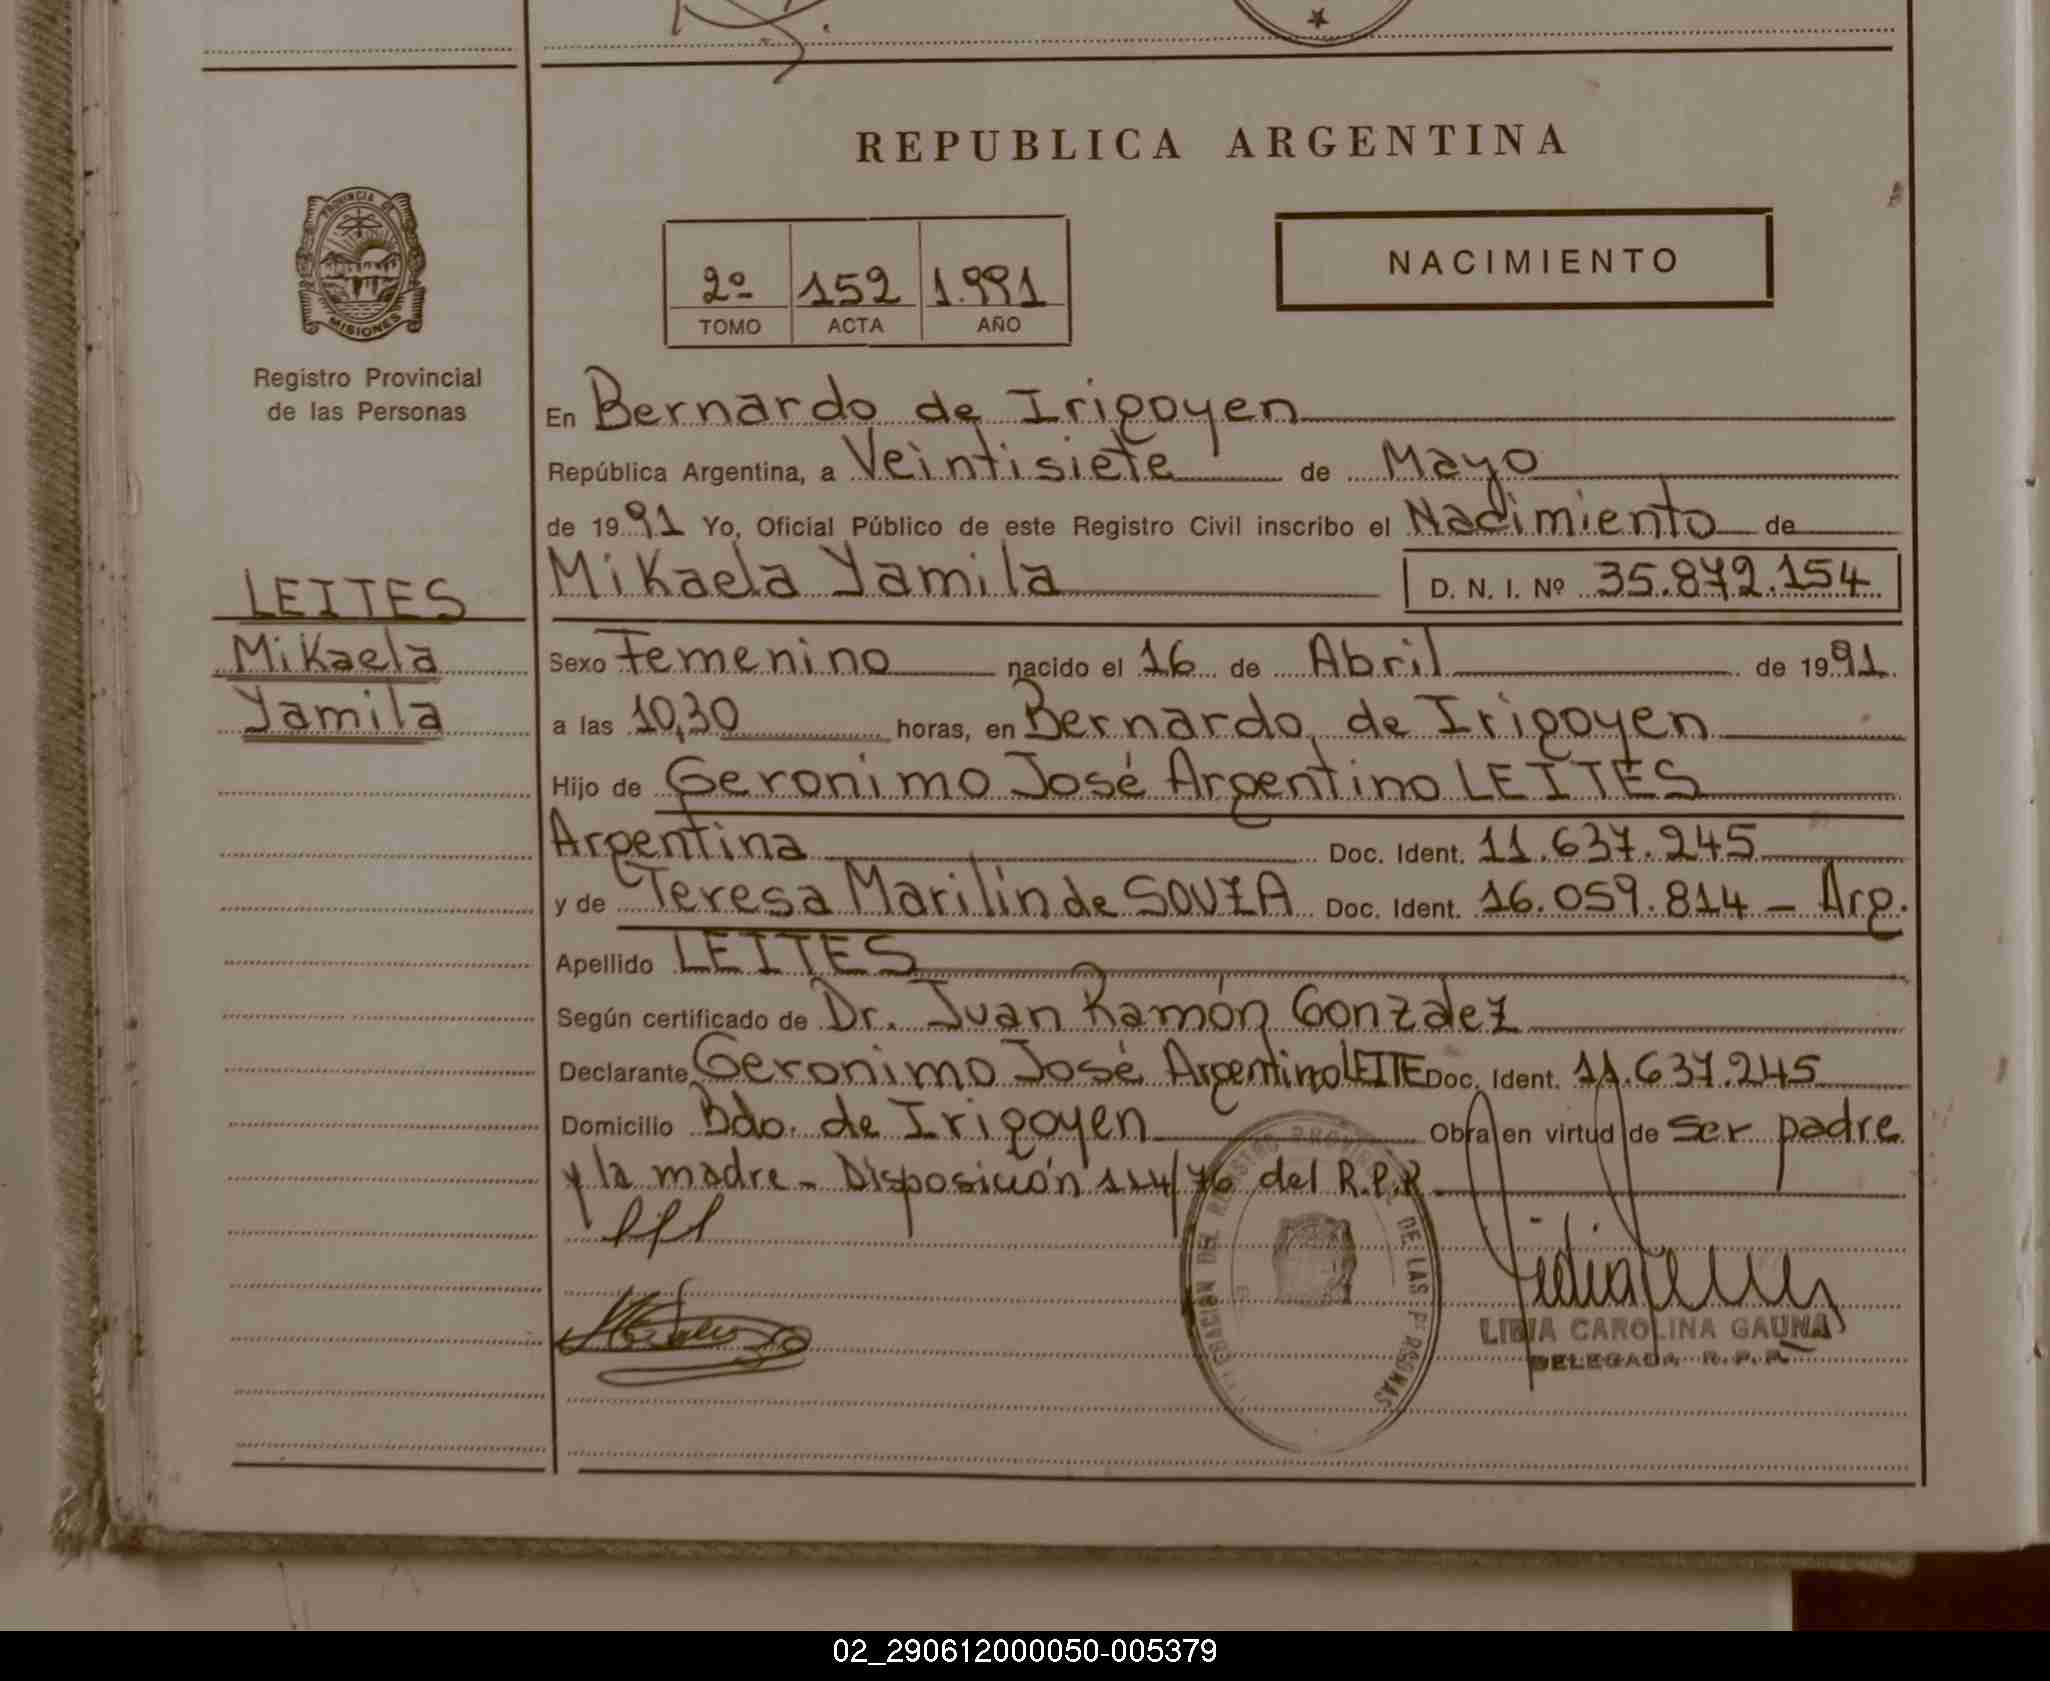 REPUBLICA ARGENTINA
PROVINCIA DE
MISIONES
Registro Provincial
de las Personas
2º 152 1.991
TOMO ACTA AÑO
NACIMIENTO
LEITES
Mikaela
Yamila
En Bernardo de Irigoyen
República Argentina, a Veintisiete de Mayo
de 1991 Yo, Oficial Público de este Registro Civil inscribo el Nacimiento de
Mikaela Yamila D. N. I. Nº 35.872.154
Sexo Femenino nacido el 16 de Abril de 1991
a las 10,30 horas, en Bernardo de Irigoyen
Hijo de Geronimo José Argentino LEITES
Argentina Doc. Ident. 11.637.245
y de Teresa Marilin de SOUZA Doc. Ident. 16.059.814 - Arg.
Apellido LEITES
Según certificado de Dr. Juan Ramón Gonzalez
Declarante Geronimo José Argentino LEITE Doc. Ident. 11.637.245
Domicilio Bdo. de Irigoyen Obra en virtud de ser padre
y la madre - Disposición 114/76 del R.P.P.
DEL REGISTRO PROVINCIAL DE LAS PERSONAS
LIDIA CAROLINA GAUNA
DELEGADA R.P.P.
02_290612000050-005379